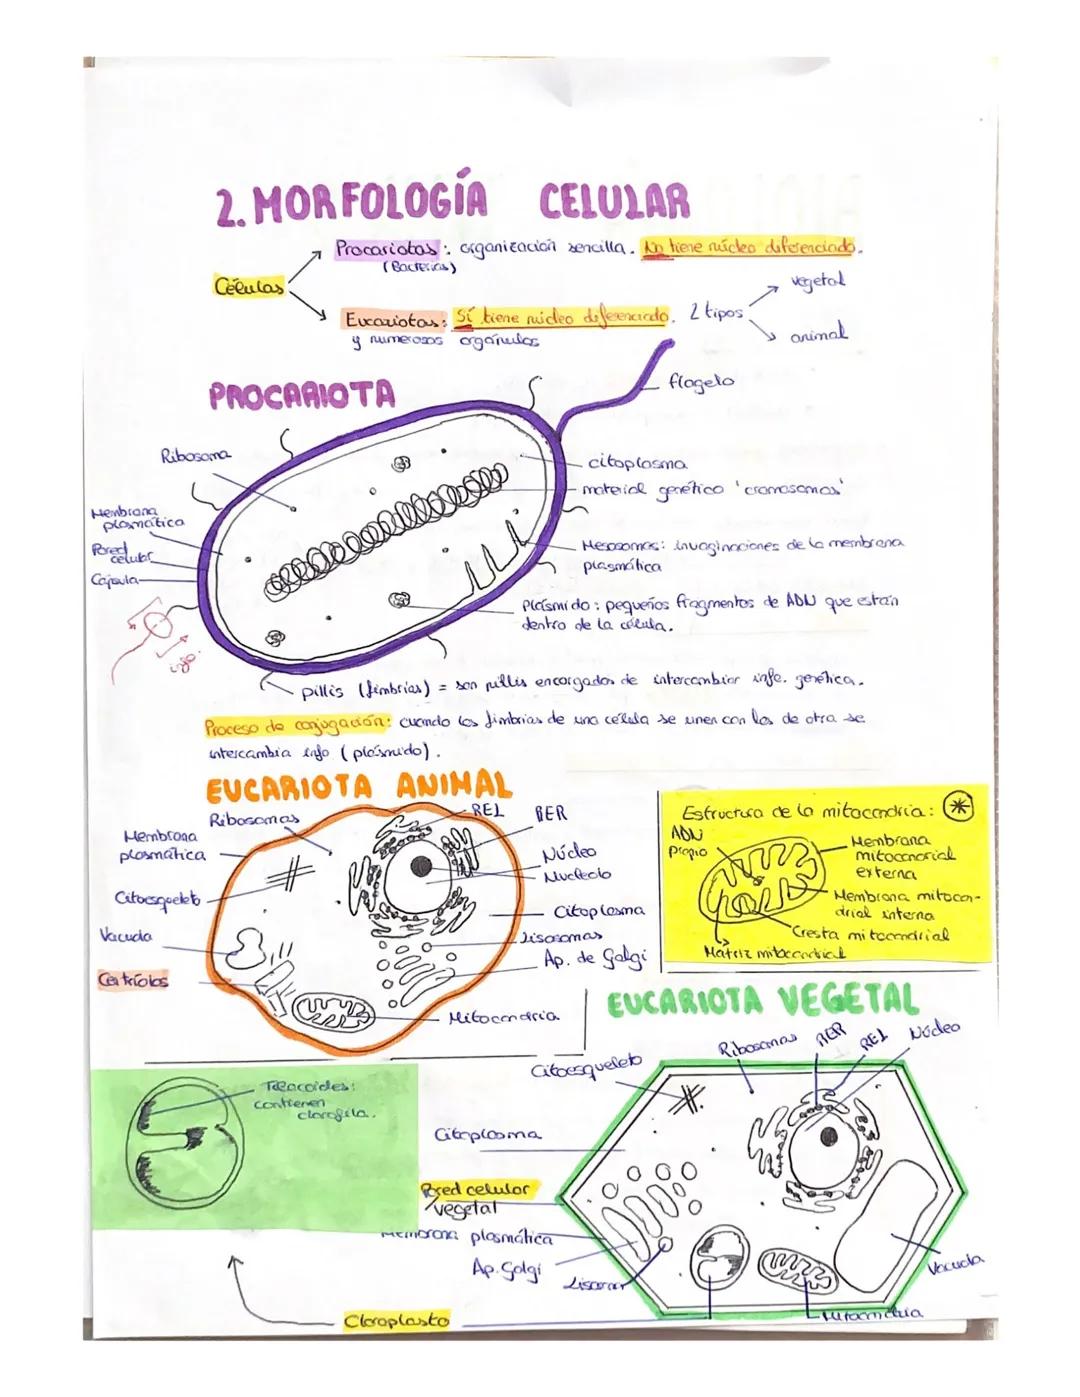 2. MORFOLOGÍA CELULAR
Procariotas: organización sencilla. No tiene núcleo diferenciado.
(Bacterias)
Células
vegetal
Eucariotas: Sí tiene núcleo diferenciado. 2 tipos
y numerosos orgánulos
animal
PROCARIOTA
flagelo
Ribosoma
citoplasma
material genético 'cromosomas'
Membrana
plasmática
Pared
celular
Cápsula
Mesosomas: invaginaciones de la membrana
plasmática
Plásmido: pequeños fragmentos de ADN que están
dentro de la célula.
info.
pillis (fimbrias) = son pillis encargados de intercambiar info. genética.
Proceso de conjugación: cuando las fimbrias de una célula se unen con las de otra se
intercambia info (plásmido).
EUCARIOTA ANIMAL
Ribosomas
REL
RER
Membrana
plasmática
Núcleo
Nucleolo
Citoesqueleto
Citoplasma
Vacuola
Lisosomas
Ap. de Golgi
Centríolos
Mitocondria
Estructura de la mitocondria: *
ADN
propio
Membrana
mitocondrial
externa
Membrana mitocon-
drial interna
Cresta mitocondrial
Matriz mitocondrial
EUCARIOTA VEGETAL
Ribosomas
RER
REL
Núcleo
Citoesqueleto
Tilacoides:
contienen
clorofila.
Citoplasma
Pared celular
vegetal
Membrana plasmática
Ap. Golgi
Vacuola
Mitocondria
Cloroplasto